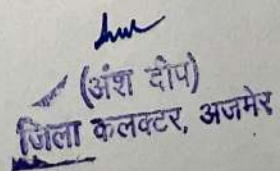 (अंश दीप)
जिला कलक्टर, अजमेर